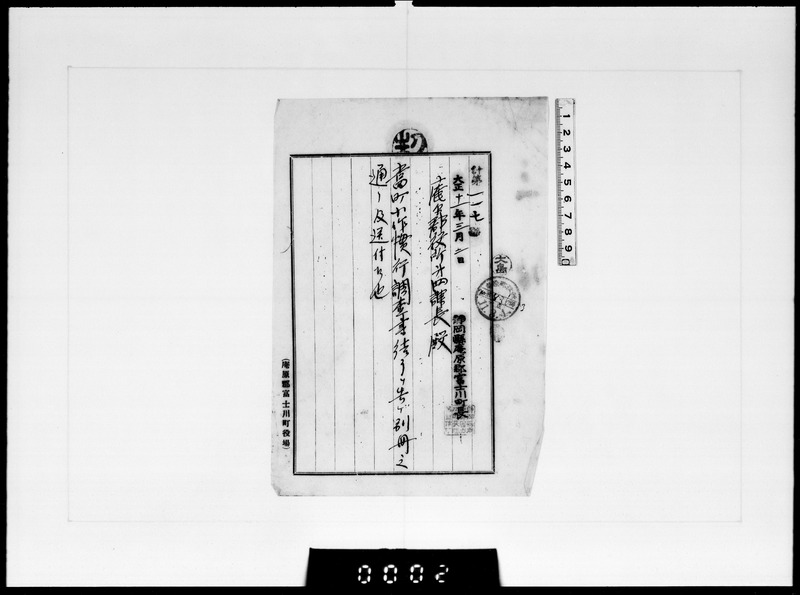 第一一七號
大正十一年三月二日
靜岡縣庵原郡富士川町長
庵原郡役所第四課長殿
當町小作慣行調査書
別冊之
通リ及送付候也
(庵原郡富士川町役場)
大島
1 2 3 4 5 6 7 8 9
0002